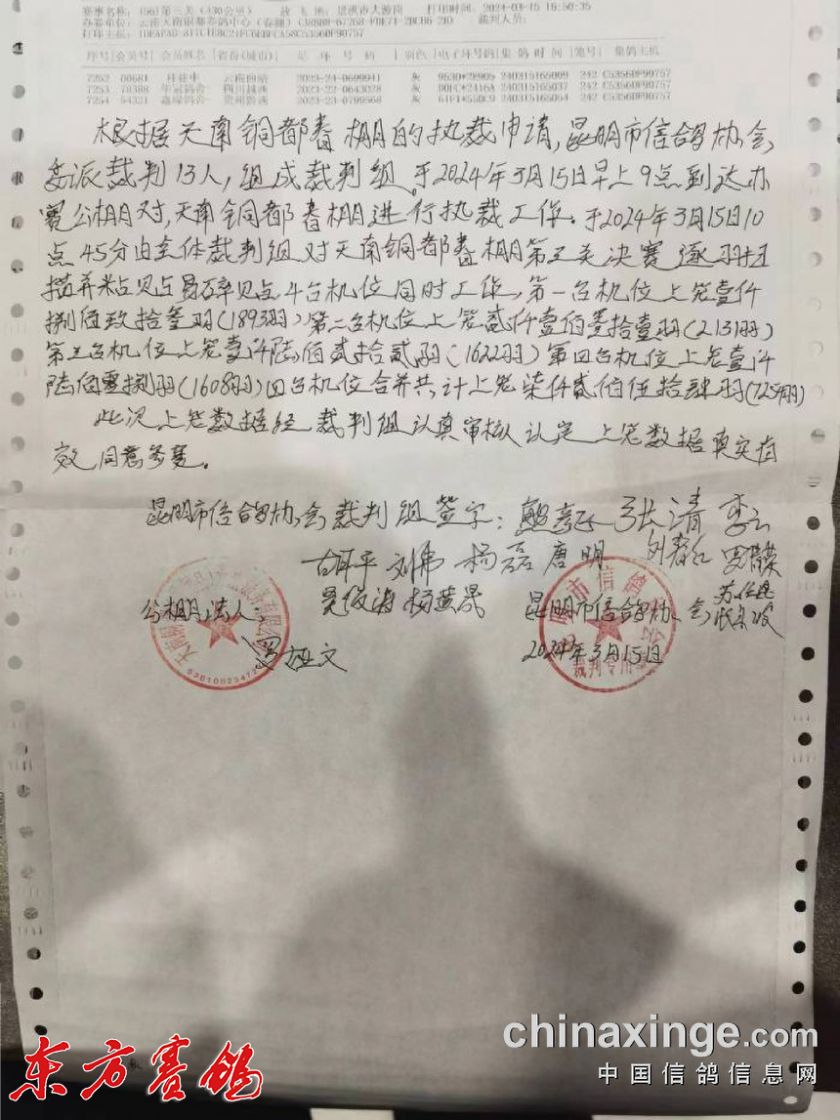 赛事名称: (56)第三关 (330公里) 放飞地: 景洪市大渡岗 打印时间: 2024-03-15 15:50:35
序号|会员号| 会员姓名 |省份(城市)| 足环号码 |羽色|电子环号码|集鸽时间|笼号| 集鸽主机
7252 00681 云南曲靖 2023-24-0699941 灰 240315165009 242 C5356DF90757
7253 2023-22-0643028 灰 240315165037 242 C5356DF90757
7254 2023-23-0799568 灰 240315165049 242 C5356DF90757
根据天南铜都春棚的执裁申请,昆明市信鸽协会
委派裁判13人,组成裁判组.于2024年3月15日早上9点到达办
赛公棚对,天南铜都春棚进行执裁工作.于2024年3月15日10
点45分由全体裁判组对天南铜都春棚第三关决赛逐羽扫
描并粘贴易碎贴4台机位同时工作,第一台机位上笼壹仟
捌佰玖拾叁羽(1893羽)第二台机位上笼贰仟壹佰叁拾壹羽(2131羽)
第三台机位上笼壹仟陆佰贰拾贰羽(1622羽)第四台机位上笼壹仟
陆佰零捌羽(1608羽)四台机位合并共计上笼柒仟贰佰伍拾肆羽(7254羽)
此次上笼数据经裁判组认真审核认定上笼数据真实有
效,同意参赛。
昆明市信鸽协会裁判组签字: 张清 李云
刘伟 杨磊 唐明
公棚法人:
昆明市信鸽协会
2024年3月15日
裁判专用章
东方赛鸽
chinaxinge.com
中国信鸽信息网